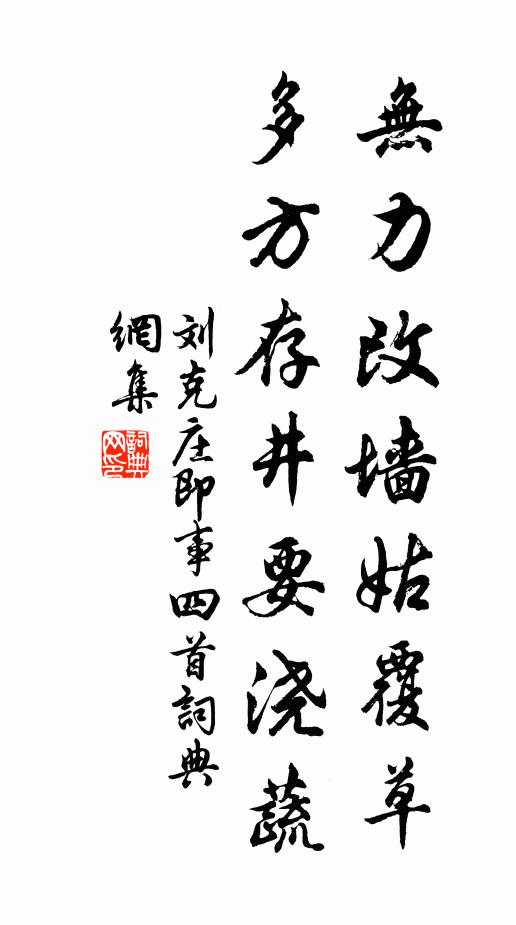 無力改墙姑覆草
多方存井要浇蔬
刘克庄即事四首詞典
網集
詞典
网印